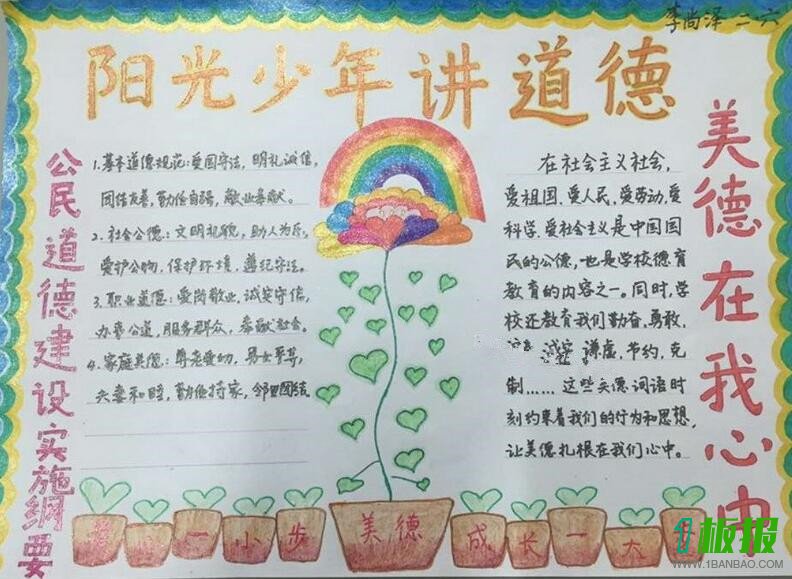 李尚泽 二·六
阳光少年讲道德
公民道德建设实施纲要
1.基本道德规范:爱国守法,明礼诚信,
团结友善,勤俭自强,敬业奉献。
2.社会公德:文明礼貌,助人为乐,
爱护公物,保护环境,遵纪守法。
3.职业道德:爱岗敬业,诚实守信,
办事公道,服务群众,奉献社会。
4.家庭美德:尊老爱幼,男女平等,
夫妻和睦,勤俭持家,邻里团结
在社会主义社会,
爱祖国、爱人民、爱劳动、爱
科学、爱社会主义是中国国
民的公德,也是学校德育
教育的内容之一。同时,学
校还教育我们勤奋,勇敢,
诚实,谦虚,节约,克
制……这些美德词语时
刻约束着我们的行为和思想,
让美德扎根在我们心中。
美德在我心中
一小步
美德
成长一大
1板报
WWW.1BANBAO.COM